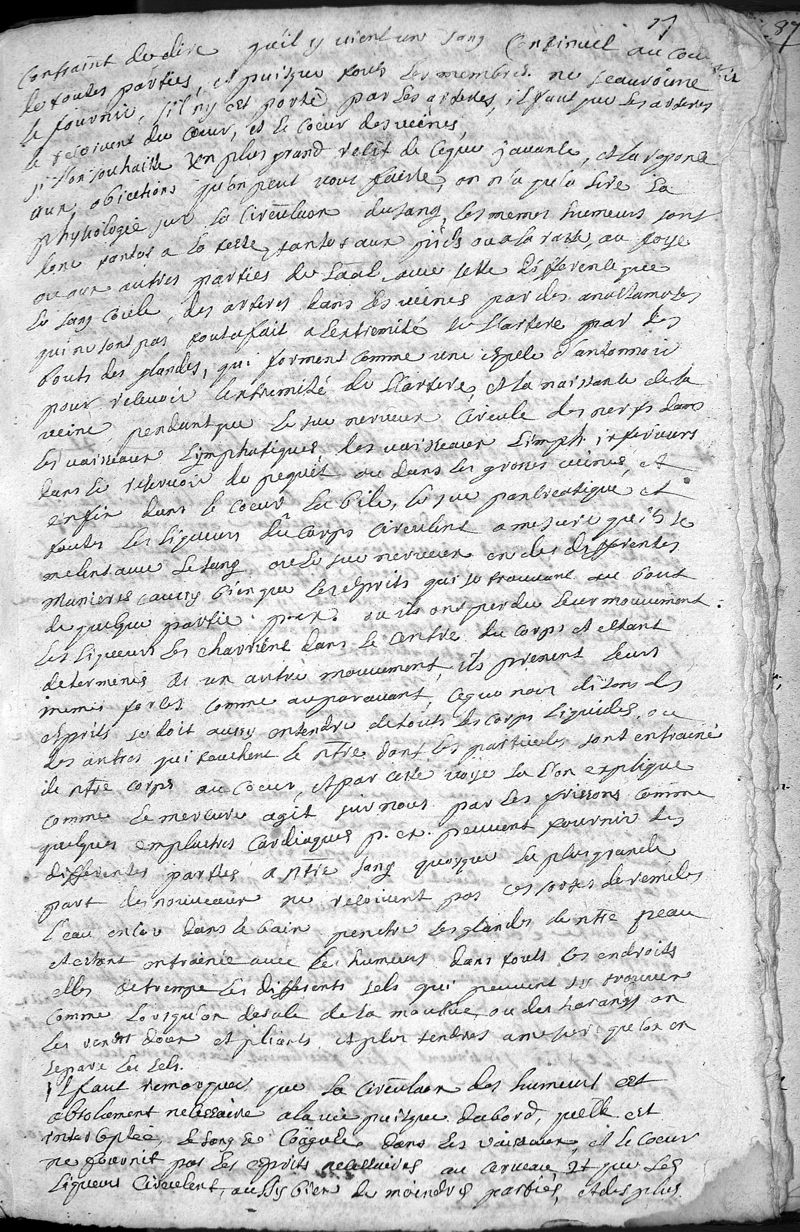 17
87
Contraint de dire qu'il y vient un sang Continuel au coeur
de toutes parties, et puisque tous les membres ne scauroient
le fournir, s'il n'y est porté par les arteres, il faut que les arteres
le recoivent du coeur, et le coeur des veines,
si l'on souhaitte un plus grand recit de ceque j'avance, et la reponse
aux obiections qu'on peut nous faire, on n'a qu'a lire la
physiologie sur la circulaon du sang, les memes humeurs sont
donc tantot a la teste, tantot aux pieds ou a la ratte, au foye
ou aux autres parties du avec cette differente que
le sang coule, des arteres dans les veines par des anastamoses
qui ne sont pas toutafait a l'extremité de l'artere par les
bouts des glandes, qui forment comme une espece d'antonnoir
pour recevoir l'extremité de l'artere, et la naissante de la
veine, pendant que le suc nerveux circule des nerfs dans
les vaisseaux lymphatiques, des vaisseaux lymph: inferieurs
dans le reservoir de pequet ou dans les grosses veines, et
enfin dans le coeur la bile, le suc pancreatique et
toutes les liqueurs du corps circulent a mesure qu'ils se
melent avec le sang ou le suc nerveux en des differentes
manieres aussy bien que les esprits qui se trouvant au bout
de quelque partie p. ex: ou ils ont perdu leur mouvement:
les liqueurs les charrient dans le centre du corps et estant
determinés a un autre mouvement, ils prenent leurs
memes forces comme auparavant, ceque nous disons des
esprits se doit aussy entendre de touts les corps liquides, ou
des autres qui touchent le nre dont les particules sont entrainé
de nre corps au coeur, et par cette voye la l'on explique
comme le mercure agit sur nous par les frissons comme
quelques emplatres cardiaques p. ex. peuvent fournir des
differentes parties a nre sang quoyque la plus grande
part des nouveaux ne recoivent pas ces sortes de remedes
l'eau entrée dans le bain penetre les glandes de nre peau
et estant entrainée avec les humeurs dans touts les endroits
elle detrempe les differents sels qui peuvent s'y trouver
comme lorsqu'on desale de la moulue, ou des harangs on
les rends doux et pliants et plus tendres a mesure qu'on en
separe les sels.
Il faut remarquer que la circulaon des humeurs est
absolument necessaire a la vie puisque dabord, qu'elle est
interceptée, le sang se coägule dans les vaisseaux, et le coeur
ne fournit pas les esprits necessaires au cerveau, et que les
liqueurs circulent, aussy bien de moindres parties, et des plus